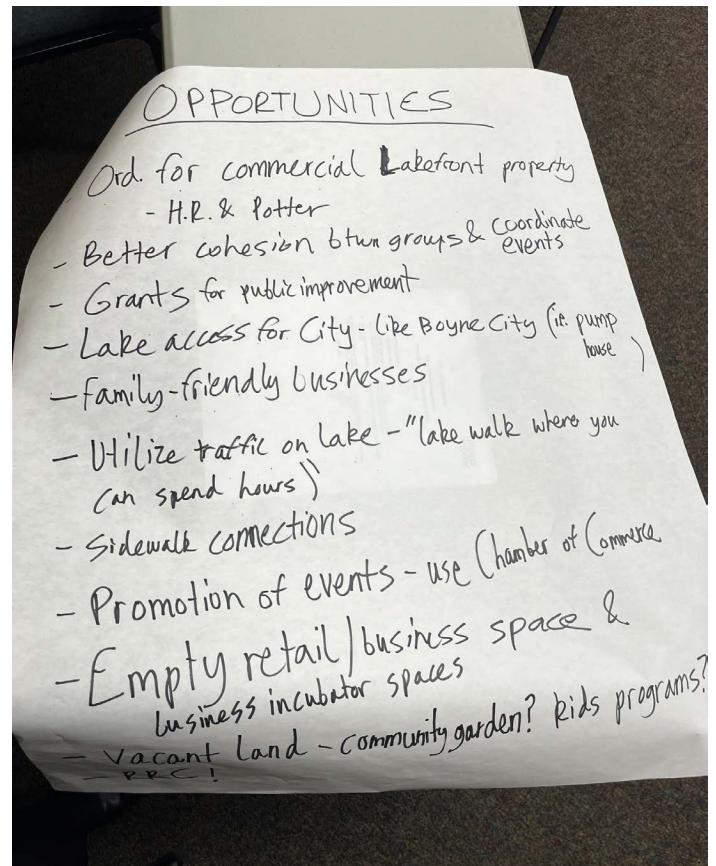 OPPORTUNITIES
Ord. for commercial Lakefront property
- H.R. & Potter
- Better cohesion btwn groups & coordinate
events
- Grants for public improvement
- Lake access for City - like Boyne City (ie. pump
house )
- Family-friendly businesses
- Utilize traffic on lake - "lake walk where you
can spend hours"
- Sidewalk connections
- Promotion of events - use Chamber of Commerce
- Empty retail/business space &
business incubator spaces
- Vacant land - community garden? kids programs?
- RRC!